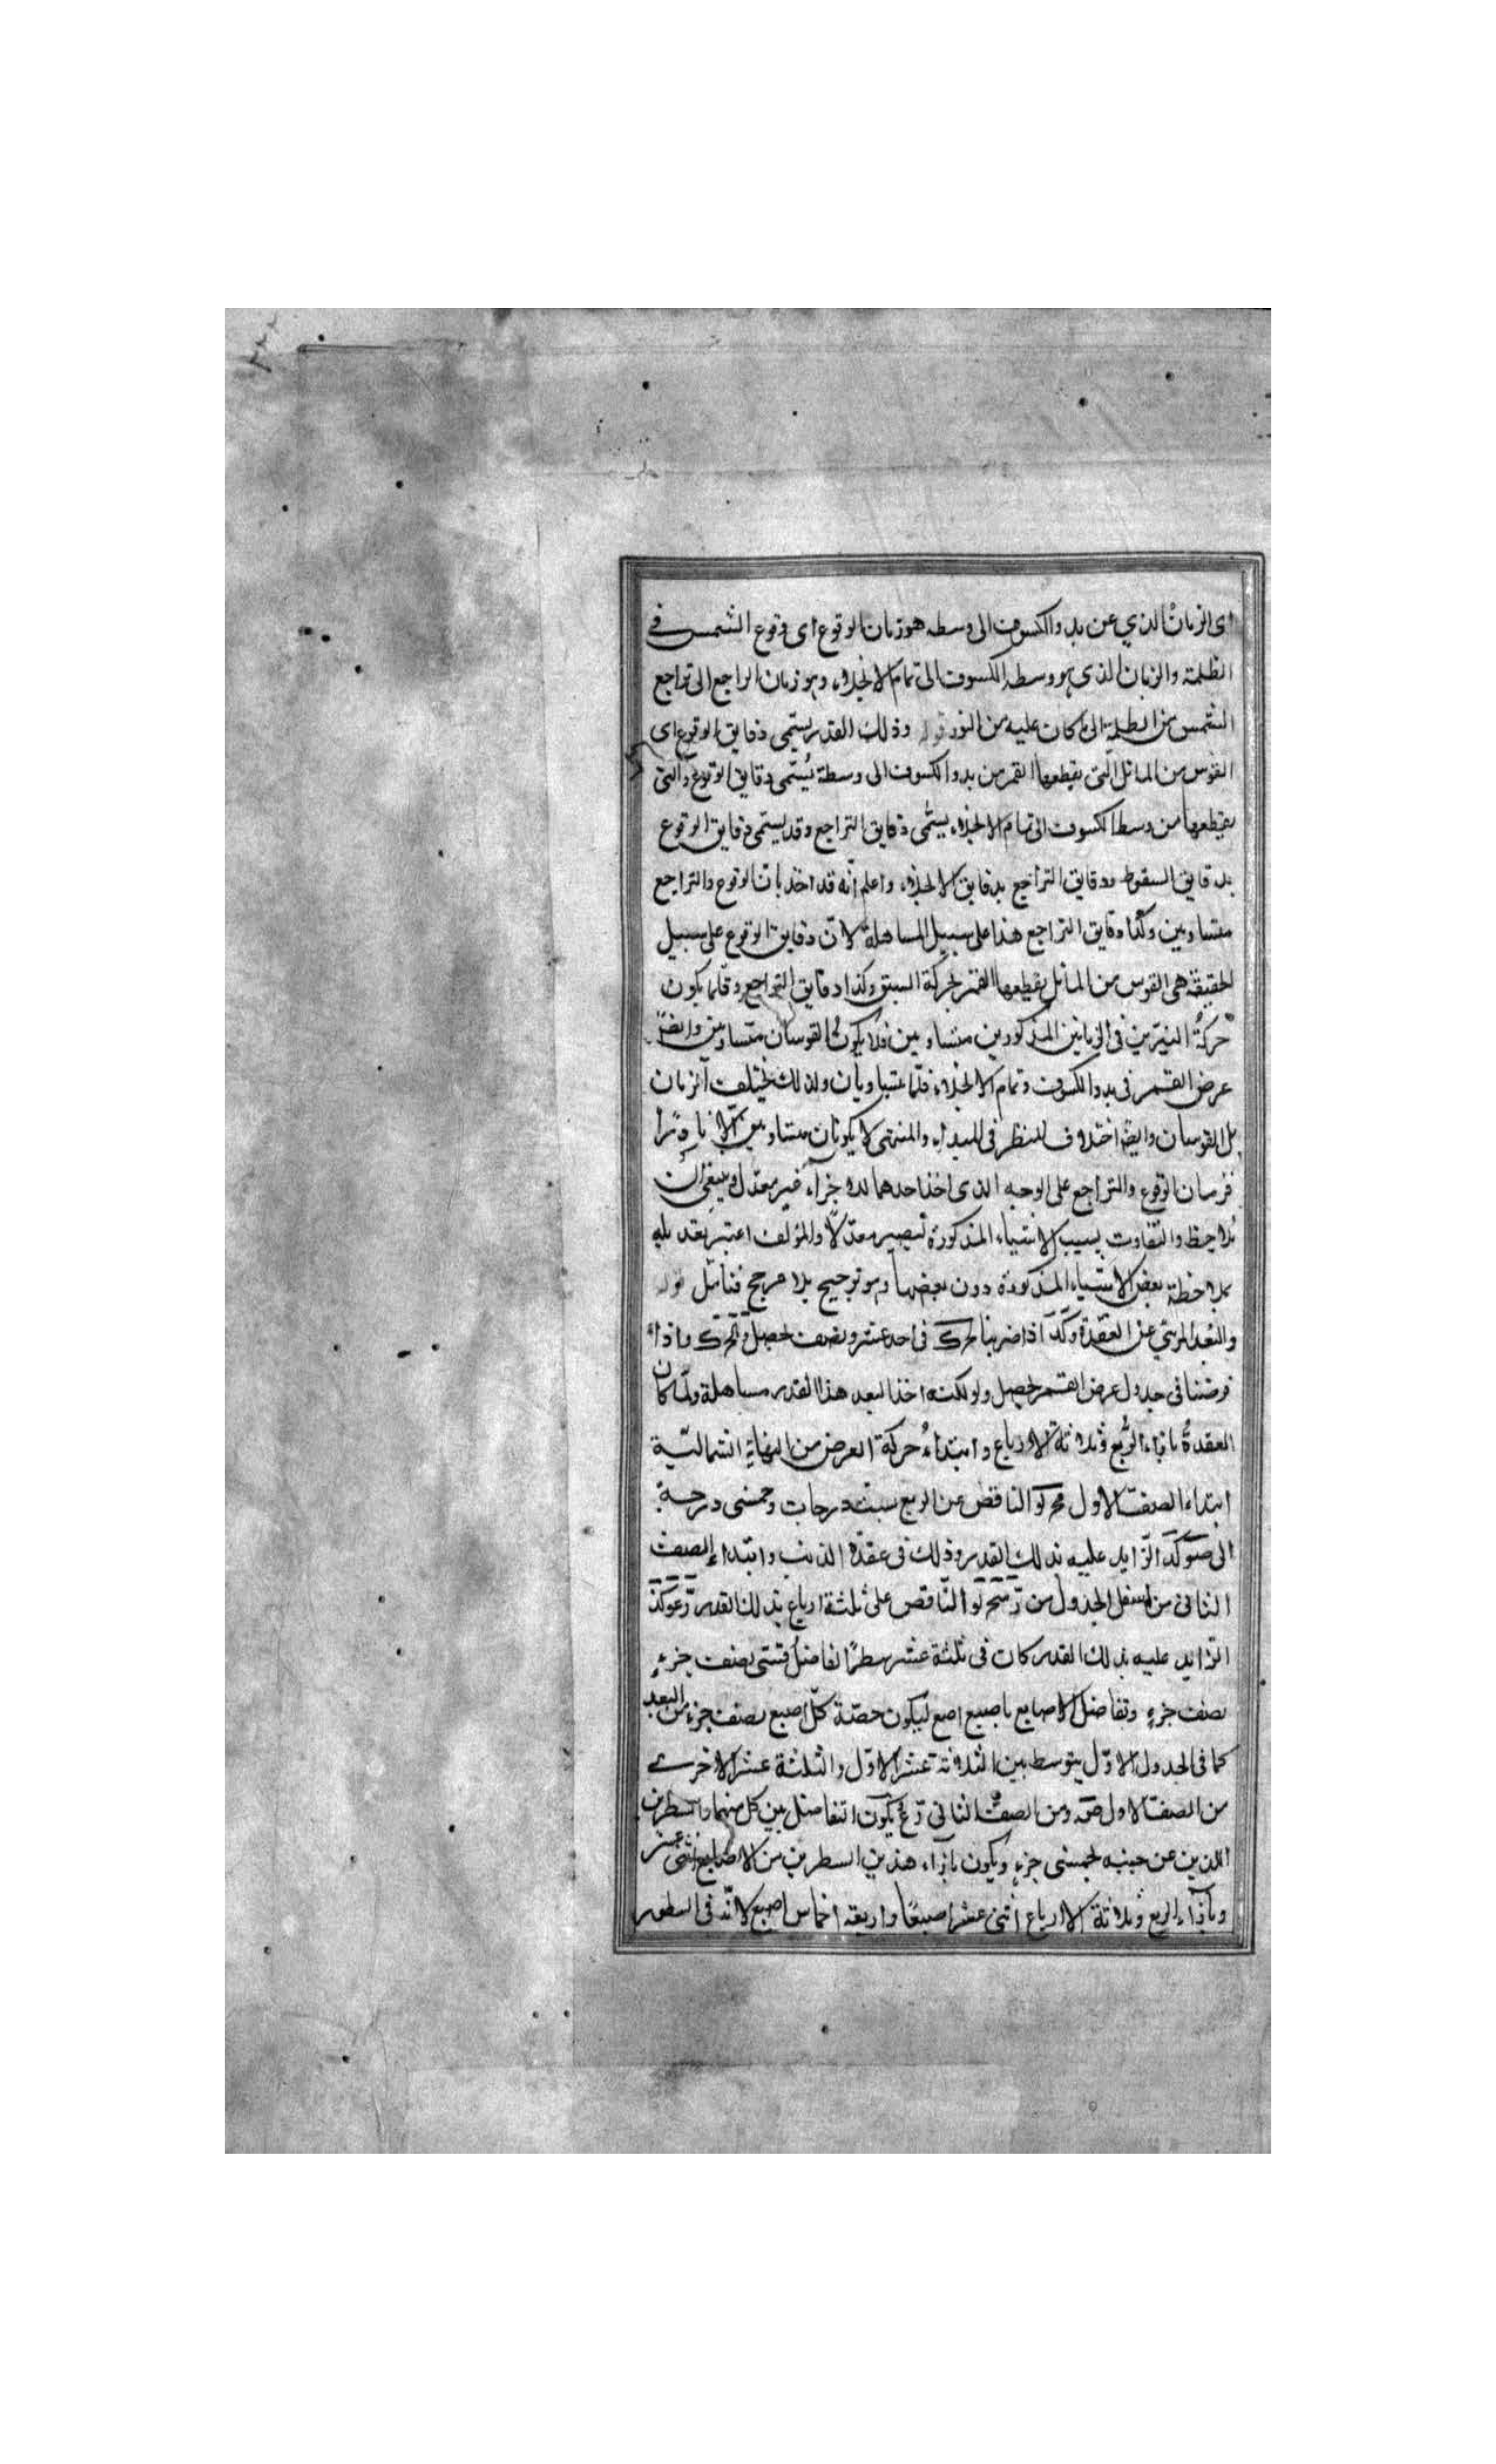 اى الزمان الذي عن بدو الكسوف الى وسطه هو زمان الوقوع اى وقوع الشمس في
الظلمة والزمان الذى هو وسط الكسوف الى تمام الانجلاء وهو زمان الراجع الى تراجع
الشمس من الظلمة الى ما كان عليه من النور قوله وذلك القدر يسمى دقايق الوقوع اى
القوس من المائل التى يقطعها القمر من بدو الكسوف الى وسطه يسمى دقايق الوقوع والتى
يقطعها من وسط الكسوف الى تمام الانجلاء يسمى دقايق التراجع وقد يسمى دقايق الوقوع
بدقايق السقوط ودقايق التراجع بدقايق الانجلاء واعلم انه قد اخذ بان الوقوع والتراجع
متساويين وكذا دقايق التراجع هذا على سبيل المساهلة لان دقايق الوقوع على سبيل
الحقيقة هى القوس من المائل يقطعها القمر بحركة السبق وكذا دقايق التراجع وقلما يكون
حركة النيرين فى الزمانين المذكورين متساويين فلا يكون القوسان متساويتين وايضا
عرض القمر فى بدو الكسوف وتمام الانجلاء قلما يتساويان ولذلك يختلف الزمان
بل القوسان وايضا اختلاف المنظر فى المبداء والمنتهى لا يكونان متساويين الا نادرا
فزمان الوقوع والتراجع على الوجه الذى اخذ احدهما للاخر غير معدل وينبغى ان
يلاحظ والتفاوت بسبب الاشياء المذكورة ليصير معدلا والمؤلف اعتبر بعديله
بملاحظة بعض الاشياء المذكورة دون بعضها وهو ترجيح بلا مرجح فتأمل قوله
والبعد المرئي عن العقدة اذا ضربنا فى احد عشر ونصف يحصل واذا
فى جدول عرض القمر يحصل ولو لكنه اخذ البعد هذا القدر مساهلة ولما كان
العقدة بازاء الربع وثلاثة الارباع وابتداء حركة العرض من النهاية الشمالية
ابتداء الصف الاول الناقص عن الربع بست درجات وخمسى درجة
الى الزايد عليه بذلك القدر وذلك فى عقدة الذنب وابتداء الصف
الثانى من اسفل الجدول من الناقص على ثلثة ارباع بذلك القدر
الزايد عليه بذلك القدر كان فى ثلثة عشر سطرا تفاضل قسى نصف جزء
نصف جزء وتفاضل الاصابع باصبع اصبع ليكون حصة كل اصبع نصف جزء من البعد
كما فى الجدول الاول يتوسط بين الثلاثة عشر الاول والثلثة عشر الاخرى
من الصف الاول ومن الصف الثانى يكون التفاضل بين كل منهما والسطرين
اللذين عن جنبه بخمسى جزء ويكون بازاء هذين السطرين من الاصابع اثنى عشر
وبازاء الربع وثلاثة الارباع اثنى عشر اصبعا واربعة اخماس اصبع لانه فى السطور